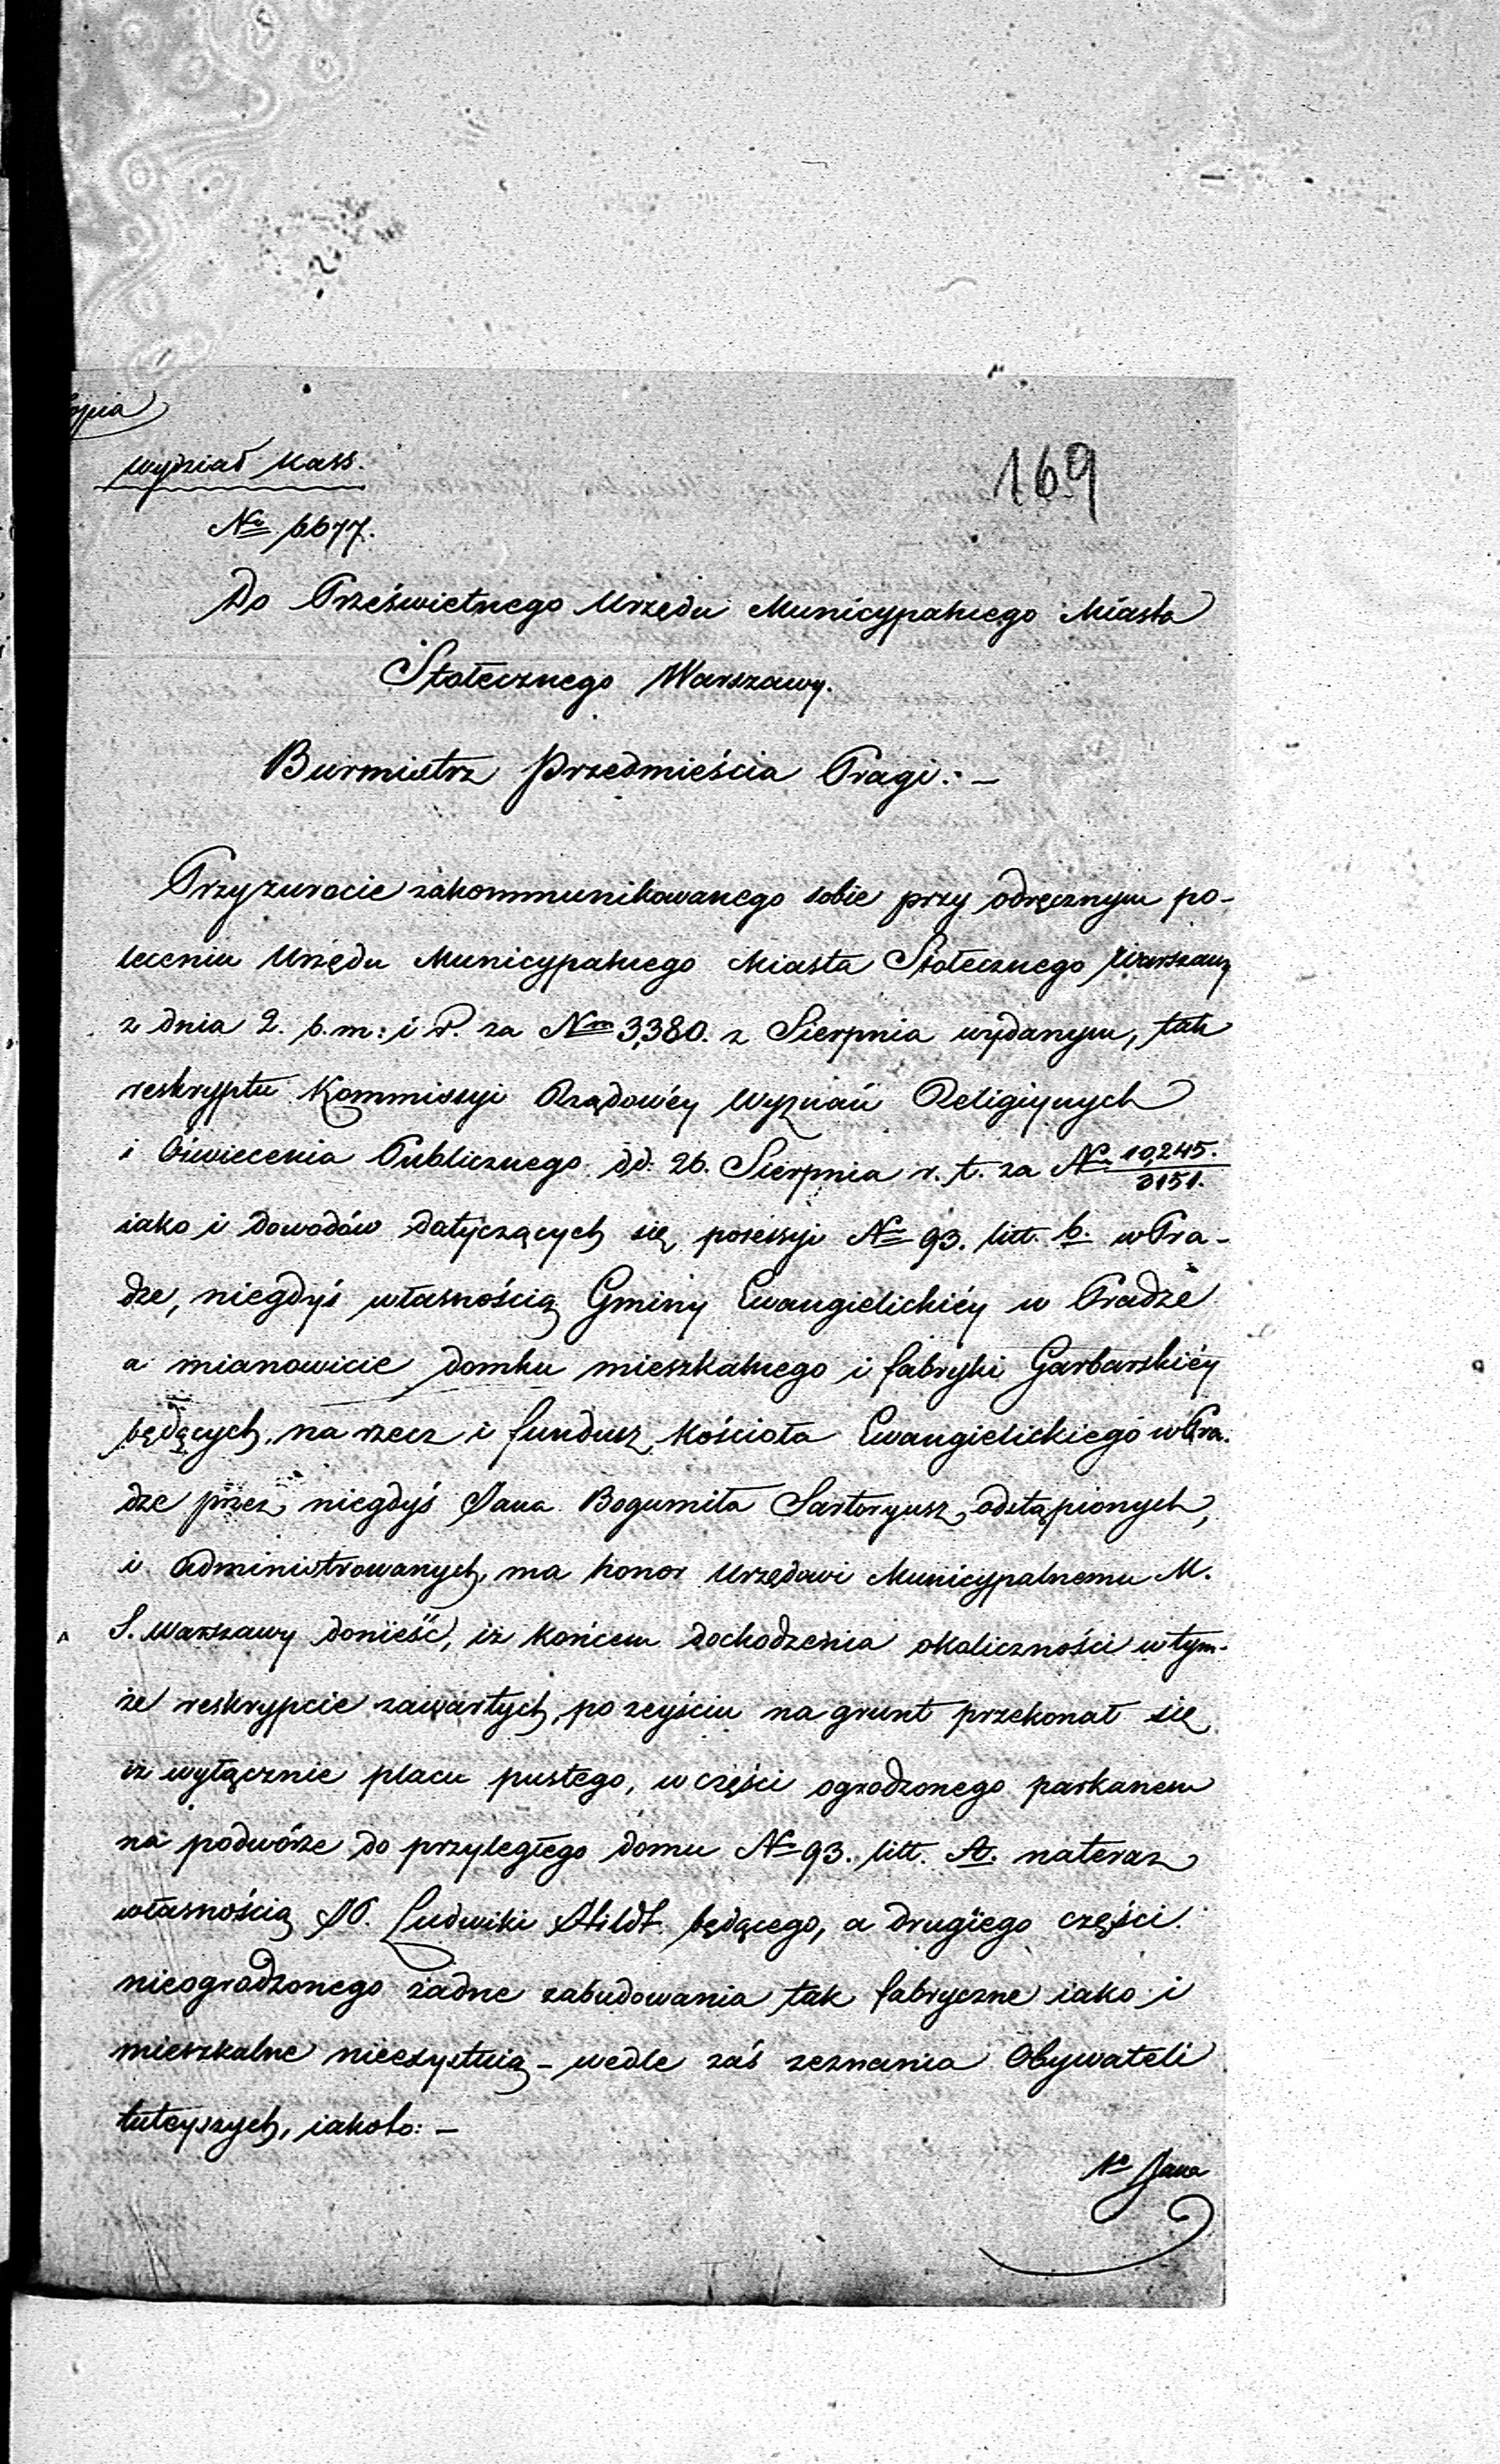 Kopia
Wydział Kass.
169
No 6677.
Do Prześwietnego Urzędu Municypalnego Miasta
Stołecznego Warszawy.
Burmistrz Przedmieścia Pragi: –
Przy zwrocie zakommunikowanego sobie przy odręcznym po-
leceniu Urzędu Municypalnego Miasta Stołecznego Warszawy
z dnia 2. b. m: i r. za Nm 3,380. z Sierpnia wydanym, tak
reskryptu Kommissyi Rządowéy Wyznań Religiynych
i Oświecenia Publicznego dd: 26. Sierpnia r. t. za No 10,245./3151.
iako i dowodów datyczących się possessyi No 93. litt. b. w Pra-
dze, niegdyś własnością Gminy Ewangielickiéy w Pradze
a mianowicie domku mieszkalnego i fabryki Garbarskiéy
będących, na rzecz i fundusz Kościoła Ewangielickiego w Pra-
dze przez niegdyś Jana Bogumiła Sartoryusz, odstąpionych,
i administrowanych, ma honor Urzędowi Municypalnemu M.
S. Warszawy donieść, iż końcem dochodzenia okoliczności w tym-
że reskrypcie zawartych, po zeyściu na grunt przekonał się
iż wyłącznie placu pustego, w części ogrodzonego parkanem
na podwórze do przyległego domu No 93. litt. A. nateraz
własnością JP. Ludwiki Hildt będącego, a drugiego części
nieogrodzonego żadne zabudowania tak fabryczne iako i
mieszkalne nieexystuią – wedle zaś zeznania Obywateli
tuteyszych, iakoto: –
1o Jana